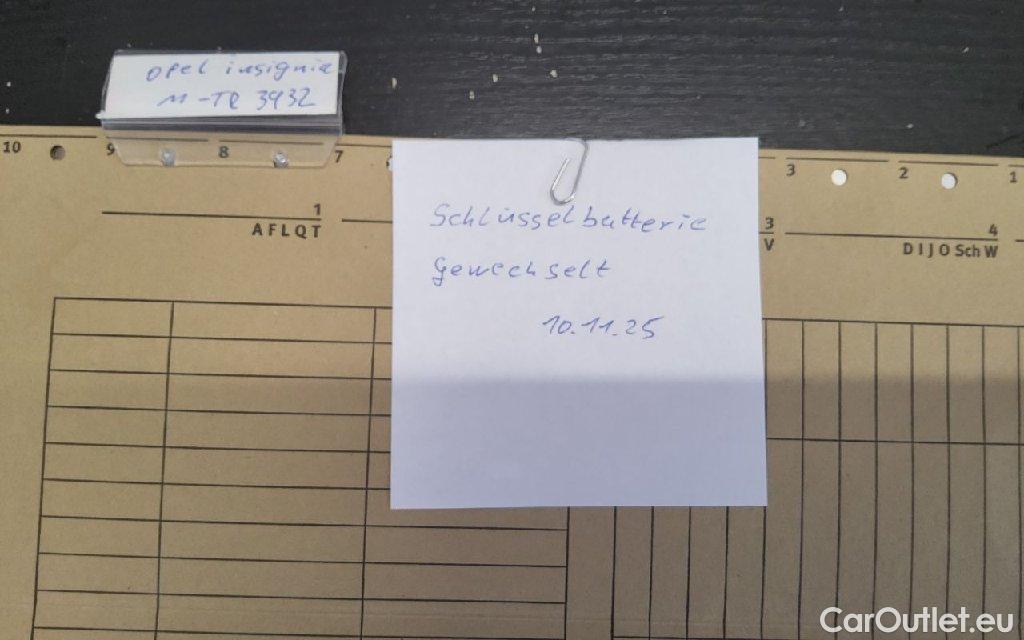 Opel insignia
M-TR 3932
10 9 8 7 3 2 1
1
AFLQT
3
V
4
DIJO Sch W
Schlüsselbatterie
Gewechselt
10.11.25
CarOutlet.eu